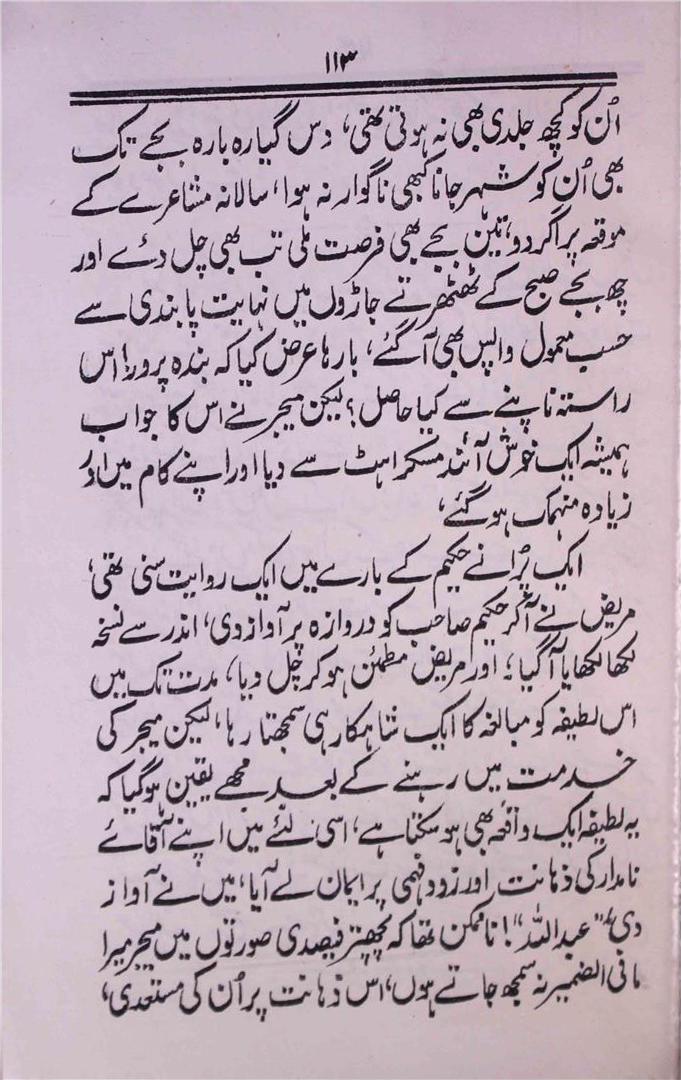 ۱۱۳
اُن کو کچھ جلدی بھی نہ ہوتی تھی، دس گیارہ بارہ بجے تک
بھی اُن کو شہر جانا کبھی ناگوار نہ ہوا، سالانہ مشاعرے کے
موقعہ پر اگر دو، تین بجے بھی فرصت ملی تب بھی چل دئے اور
چھ بجے صبح کے ٹھٹھرتے جاڑوں میں نہایت پابندی سے
حسب معمول واپس بھی آگئے، بارہا عرض کیا کہ بندہ پرور! اس
راستہ ناپنے سے کیا حاصل؟ لیکن میجر نے اس کا جواب
ہمیشہ ایک خوش آئند مسکراہٹ سے دیا اور اپنے کام میں اور
زیادہ منہمک ہو گئے،
ایک پُرانے حکیم کے بارے میں ایک روایت سنی تھی،
مریض نے آکر حکیم صاحب کو دروازہ پر آواز دی، اندر سے نسخہ
لکھا لکھایا آگیا؛ اور مریض مطمئن ہو کر چل دیا، مدت تک میں
اس لطیفہ کو مبالغہ کا ایک شاہکار ہی سمجھتا رہا، لیکن میجر کی
خدمت میں رہنے کے بعد مجھے یقین ہو گیا کہ
یہ لطیفہ ایک واقعہ بھی ہو سکتا ہے، اسی لئے میں اپنے آقائے
نامدار کی ذہانت اور زود فہمی پر ایمان لے آیا، میں نے آواز
دی "عبداللہ"! ناممکن تھا کہ پچھتر فیصدی صورتوں میں میجر میرا
مافی الضمیر نہ سمجھ جاتے ہوں، اس ذہانت پر اُن کی مستعدی،